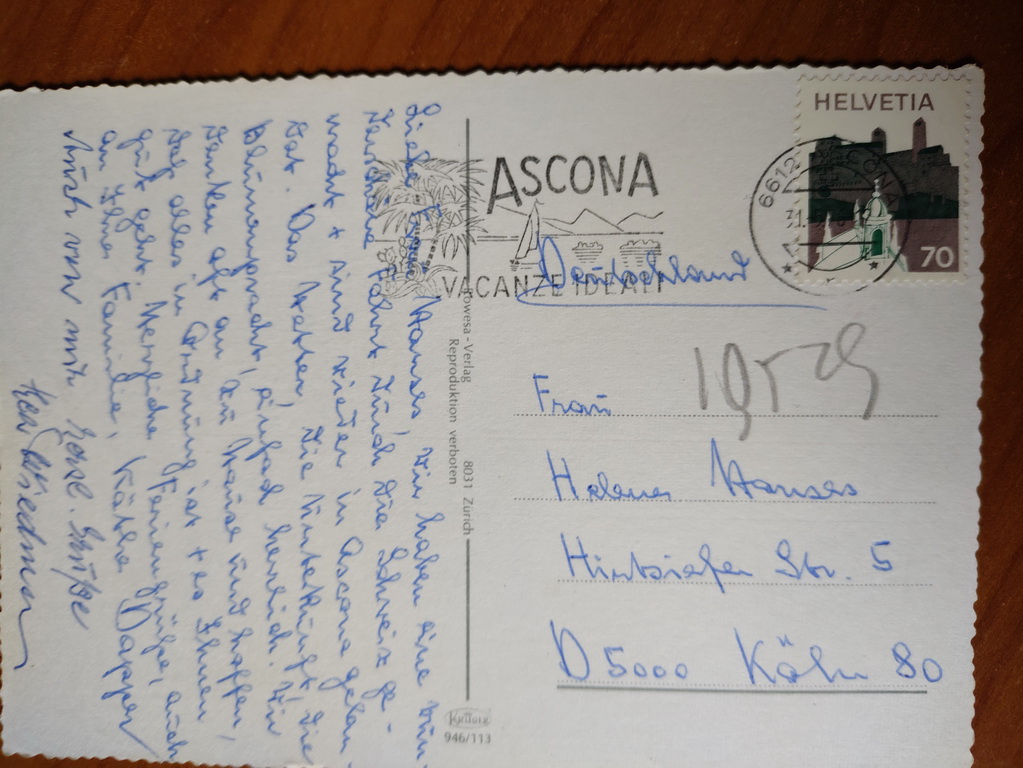 Liebe Hanses, wir haben eine wun-
derschöne Fahrt durch die Schweiz ge-
macht + sind wieder in Ascona gelan-
det. Das Wetter, die Unterkunft, die
Blumenpracht, einfach herrlich. Wir
denken oft an zu Hause und hoffen,
daß alles in Ordnung ist + es Ihnen
gut geht. Herzliche Feriengrüße, auch
an Ihre Familie, Käthe Dapper
Auch von mir herzl. Grüße
HELVETIA
70
6612 ASCONA
ASCONA
VACANZE IDEALI
Deutschland
19529
Frau
Helene Hanses
D 5000 Köln 80
Str. 5
Rowesa-Verlag 8031 Zürich
Reproduktion verboten
KRÜGER
946/113